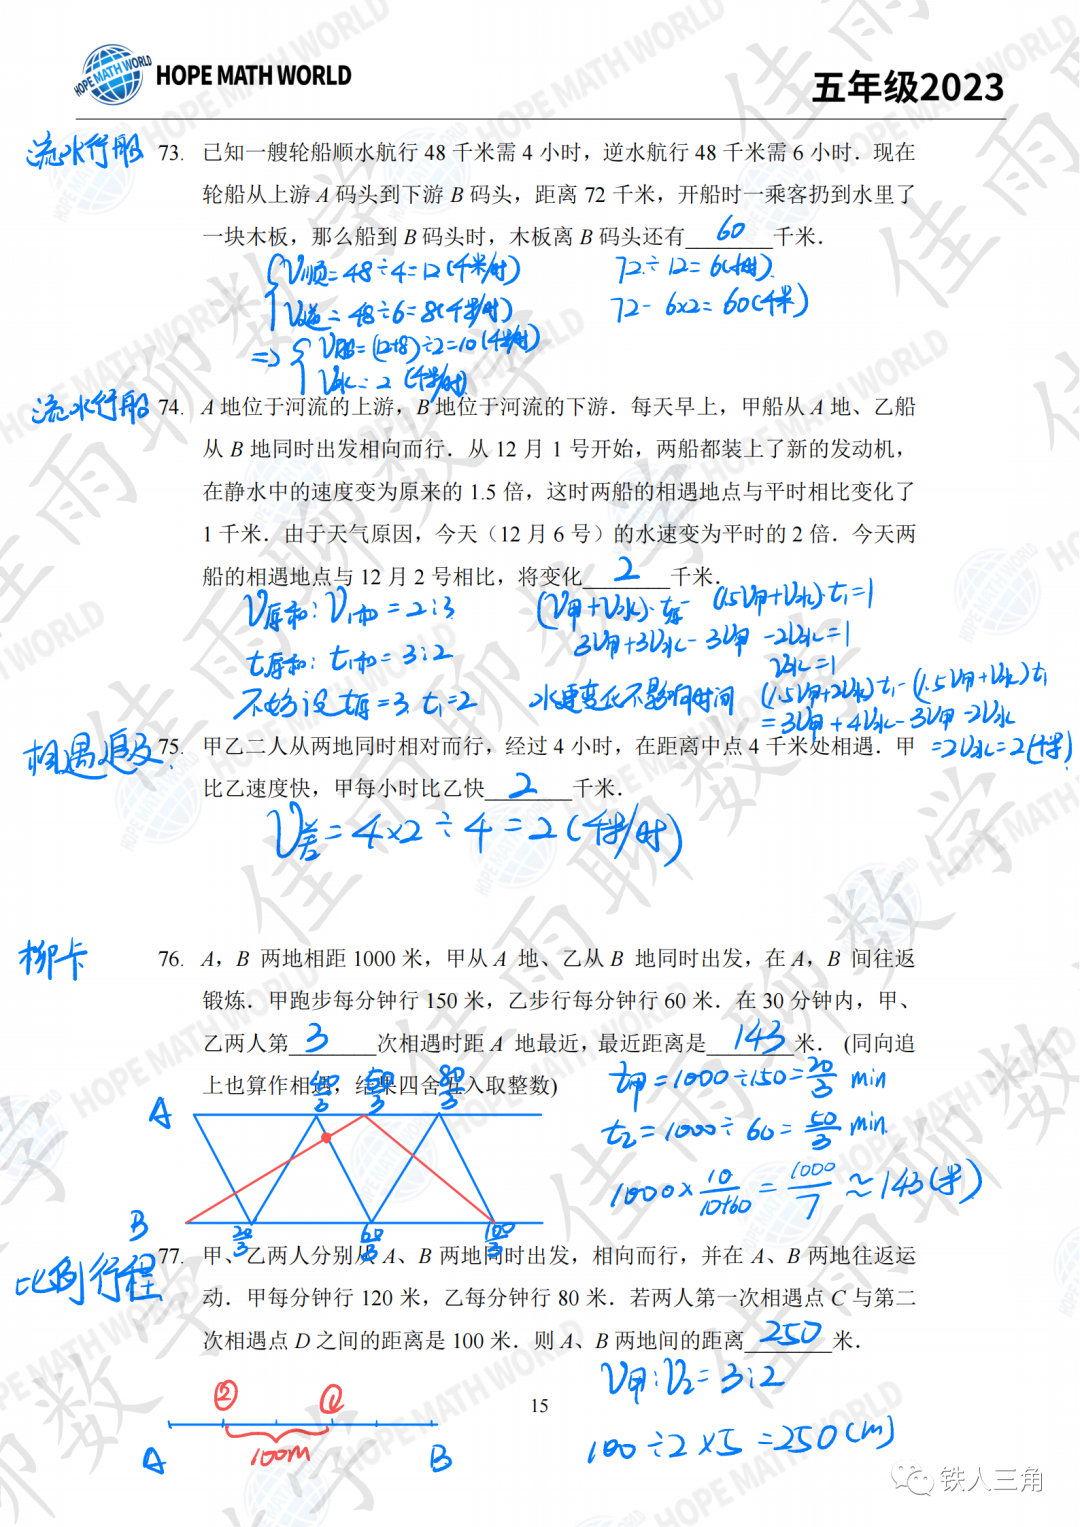 HOPE MATH WORLD
五年级2023
流水行船
73. 已知一艘轮船顺水航行 48 千米需 4 小时，逆水航行 48 千米需 6 小时．现在
轮船从上游 A 码头到下游 B 码头，距离 72 千米，开船时一乘客扔到水里了
一块木板，那么船到 B 码头时，木板离 B 码头还有 60 千米．
V顺=48÷4=12(千米/时) 72÷12=6(时)
V逆=48÷6=8(千米/时) 72-6×2=60(千米)
=> V船=(12+8)÷2=10(千米/时)
V水=2(千米/时)
流水行船
74. A 地位于河流的上游，B 地位于河流的下游．每天早上，甲船从 A 地、乙船
从 B 地同时出发相向而行．从 12 月 1 号开始，两船都装上了新的发动机，
在静水中的速度变为原来的 1.5 倍，这时两船的相遇地点与平时相比变化了
1 千米．由于天气原因，今天（12 月 6 号）的水速变为平时的 2 倍．今天两
船的相遇地点与 12 月 2 号相比，将变化 2 千米．
V原和:V1和=2:3 (V甲+V水)·t原-(1.5V甲+V水)·t1=1
t原和:t1和=3:2 3V甲+3V水-3V甲-2V水=1
V水=1
不妨设t原=3, t1=2 水速变化不影响时间 (1.5V甲+2V水)t1-(1.5V甲+V水)t1
=3V甲+4V水-3V甲-2V水
=2V水=2(千米)
相遇追及
75. 甲乙二人从两地同时相对而行，经过 4 小时，在距离中点 4 千米处相遇．甲
比乙速度快，甲每小时比乙快 2 千米．
V差=4×2÷4=2(千米/时)
柳卡
76. A，B 两地相距 1000 米，甲从 A 地、乙从 B 地同时出发，在 A，B 间往返
锻炼．甲跑步每分钟行 150 米，乙步行每分钟行 60 米．在 30 分钟内，甲、
乙两人第 3 次相遇时距 A 地最近，最近距离是 143 米．(同向追
上也算作相遇，结果四舍五入取整数)
40/3 50/3 80/3
t甲=1000÷150=20/3 min
A
t乙=1000÷60=50/3 min
1000×10/(10+60)=1000/7≈143(米)
B
20/3 60/3 100/3
比例行程
77. 甲、乙两人分别从 A、B 两地同时出发，相向而行，并在 A、B 两地往返运
动．甲每分钟行 120 米，乙每分钟行 80 米．若两人第一次相遇点 C 与第二
次相遇点 D 之间的距离是 100 米．则 A、B 两地间的距离 250 米．
V甲:V乙=3:2
② ①
15
100m
A B
100÷2×5=250(m)
铁人三角
佳雨聊数学